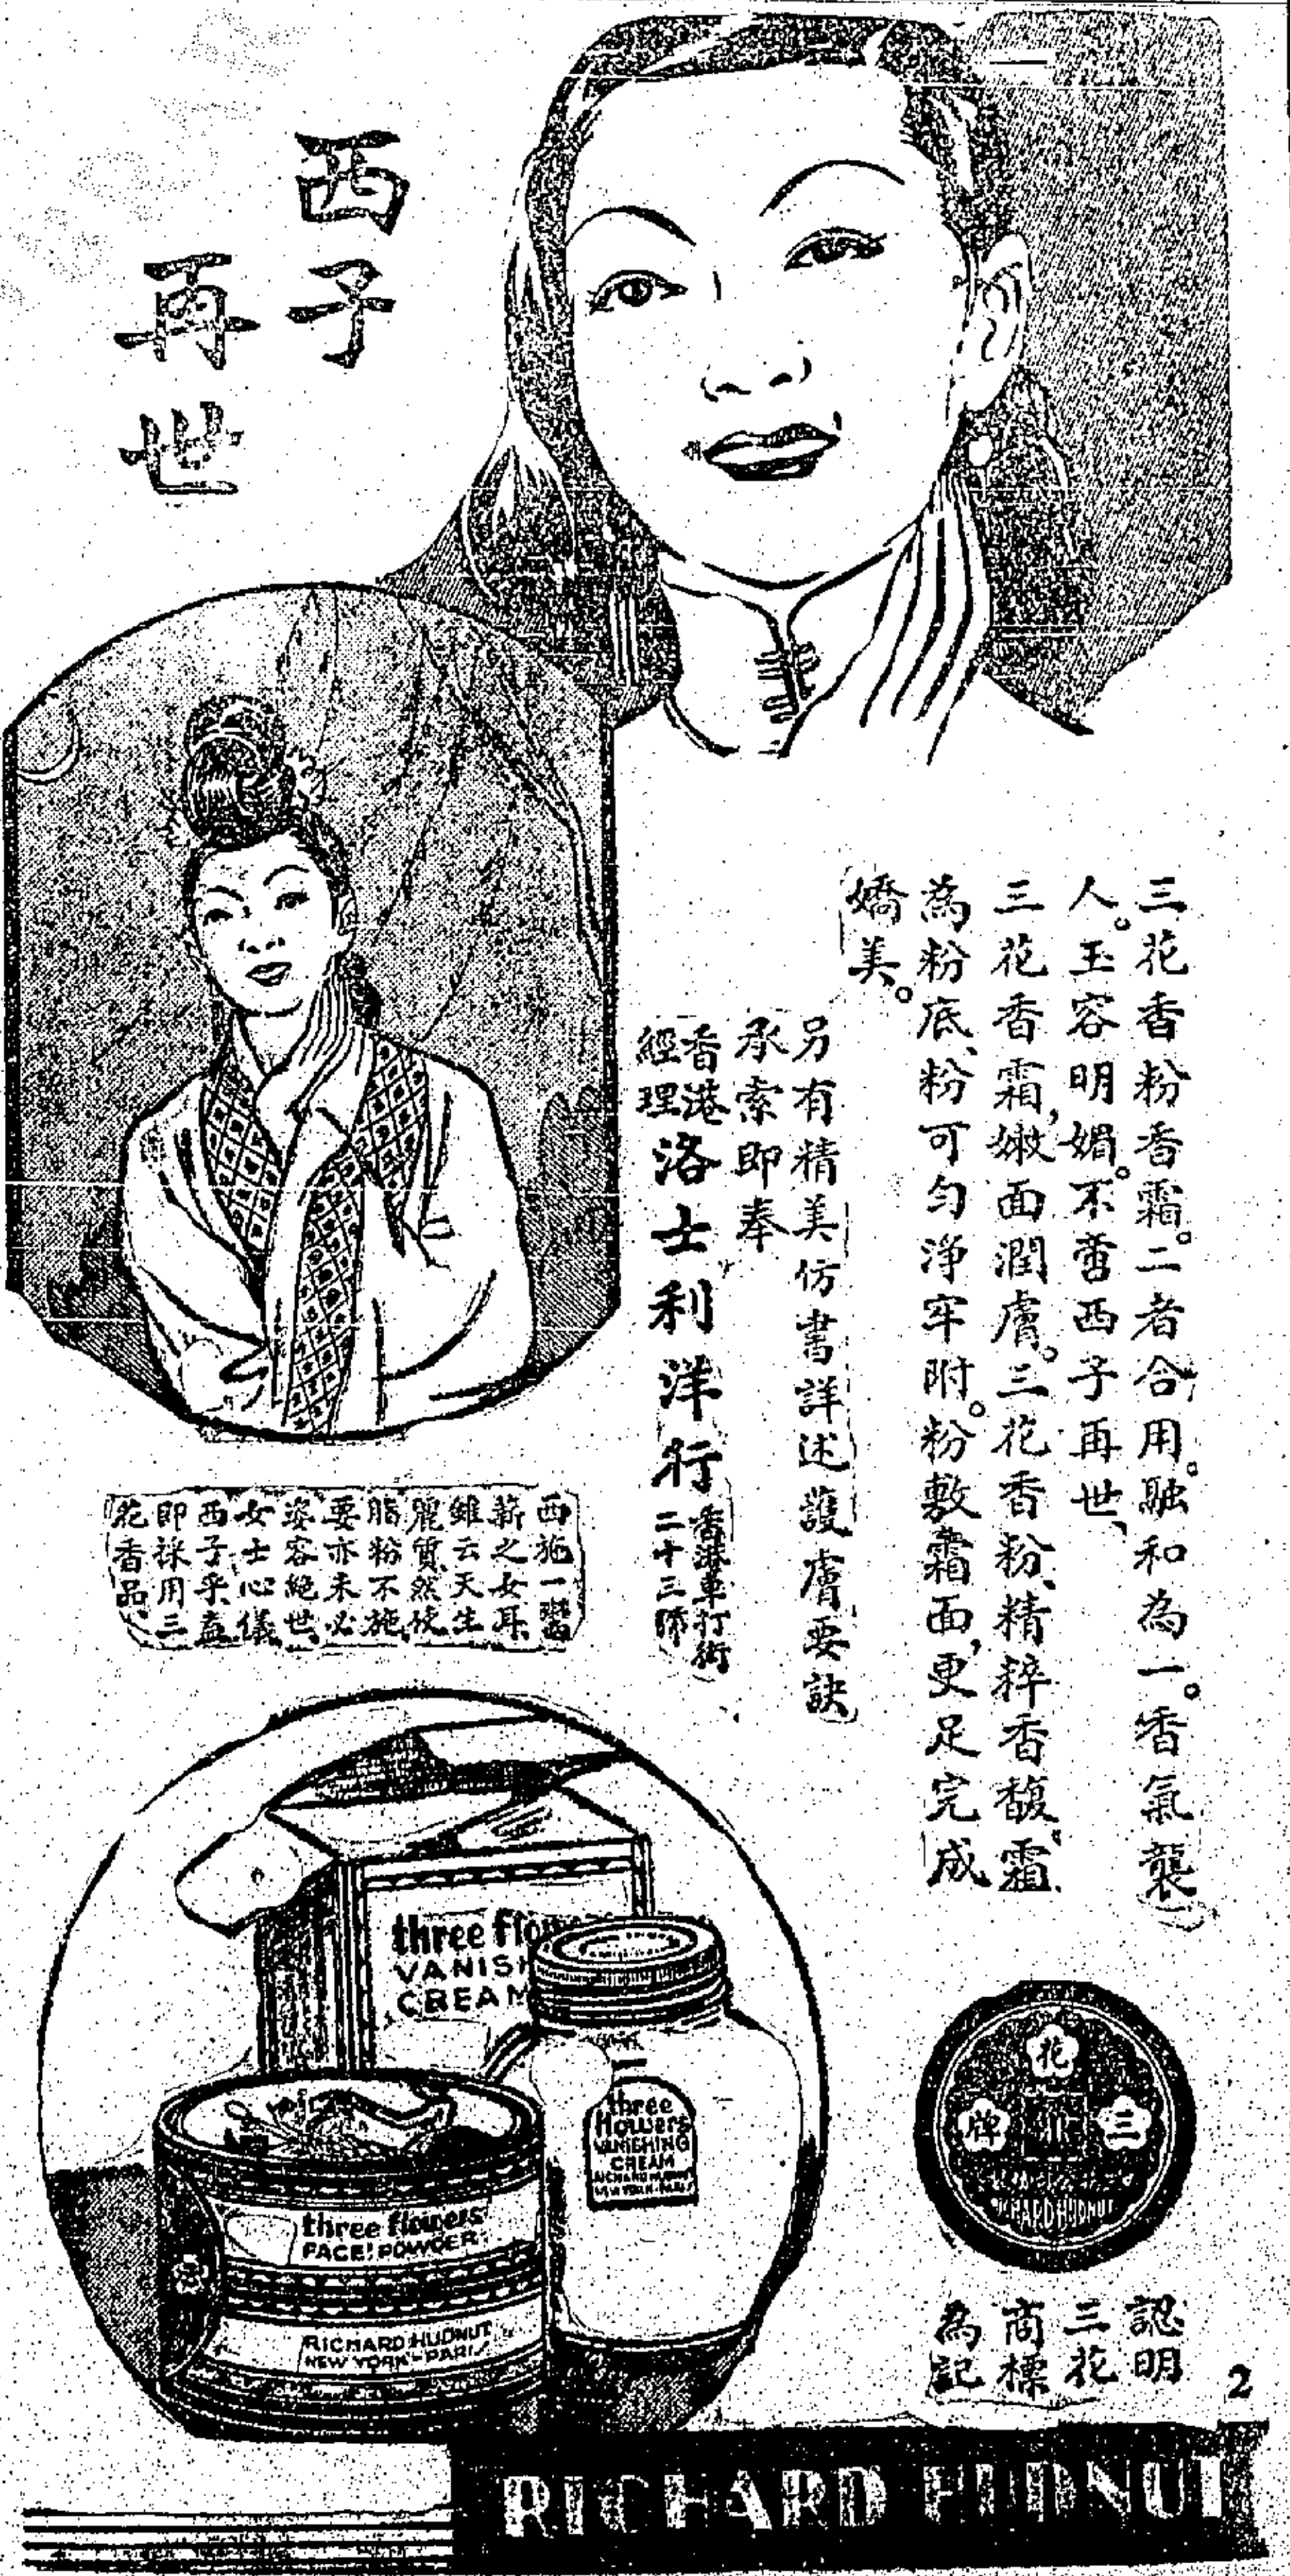 西子
再世
三花香粉香霜。二者合用。融和為一。香氣襲
人。玉容明媚。不啻西子再世、
三花香霜，嫩面潤膚。三花香粉、精粹香馥。霜
為粉底、粉可勻淨牢附。粉敷霜面，更足完成
嬌美。
另有精美仿書詳述護膚要訣
承索即奉
香港
經理
洛士利洋行
香港車打街
二十三號
西施一
薪之女耳
雖云天生
麗質然使
脂粉不施
要亦未必
姿容絕世
女士心儀
西子乎盍
即採用三
花香品
three flow
VANISH
CREAM
three
flowers
VANISHING
CREAM
RICHARD HUDNUT
NEW YORK-PARIS
three flowers
FACE POWDER
RICHARD HUDNUT
NEW YORK-PARIS
三花牌
RICHARD HUDNUT
認明
三花
商標
為記
2
RICHARD HUDNUT